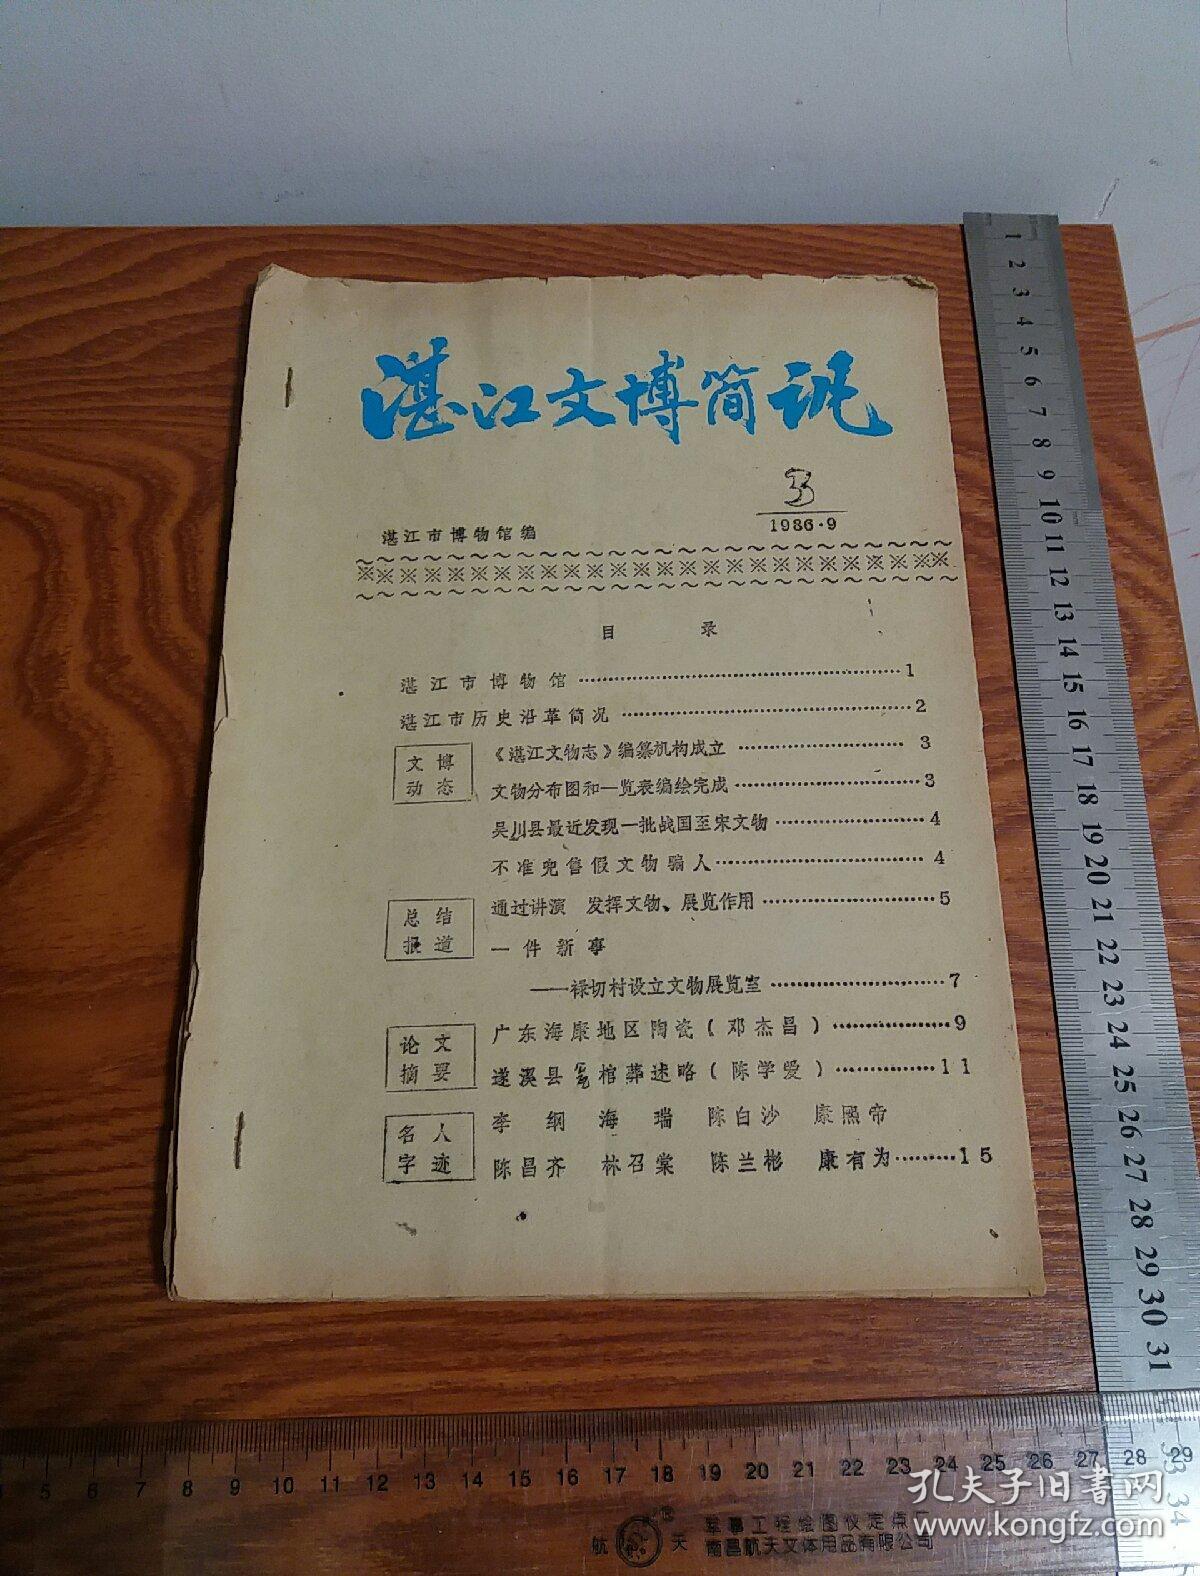 湛江文博简讯
3
1986·9
湛江市博物馆编
~~~~~~~~~~~~~~~~~~~~~~~~~~
※※※※※※※※※※※※※※※※※※※※※※※※※※
~~~~~~~~~~~~~~~~~~~~~~~~~~
目 录
湛江市博物馆……………………………………1
湛江市历史沿革简况……………………………………2
文博
动态
《湛江文物志》编纂机构成立……………………3
文物分布图和一览表编绘完成……………………3
吴川县最近发现一批战国至宋文物………………4
不准兜售假文物骗人………………………4
总结
报道
通过讲演 发挥文物、展览作用……………………5
一件新事
——禄切村设立文物展览室……………………7
论文
摘要
广东海康地区陶瓷(邓杰昌)……………9
遂溪县瓮棺葬述略(陈学爱)……………11
名人
字迹
李纲 海瑞 陈白沙 康熙帝
陈昌齐 林召棠 陈兰彬 康有为………15
1 2 3 4 5 6 7 8 9 10 11 12 13 14 15 16 17 18 19 20 21 22 23 24 25 26 27 28 29 30 31 33 34
5 6 7 8 9 10 11 12 13 14 15 16 17 18 19 20 21 22 23 24 25 26 27 28 29
航天
军事工程绘图仪定点厂
南昌航天文体用品有限公司
孔夫子旧书网
www.kongfz.com